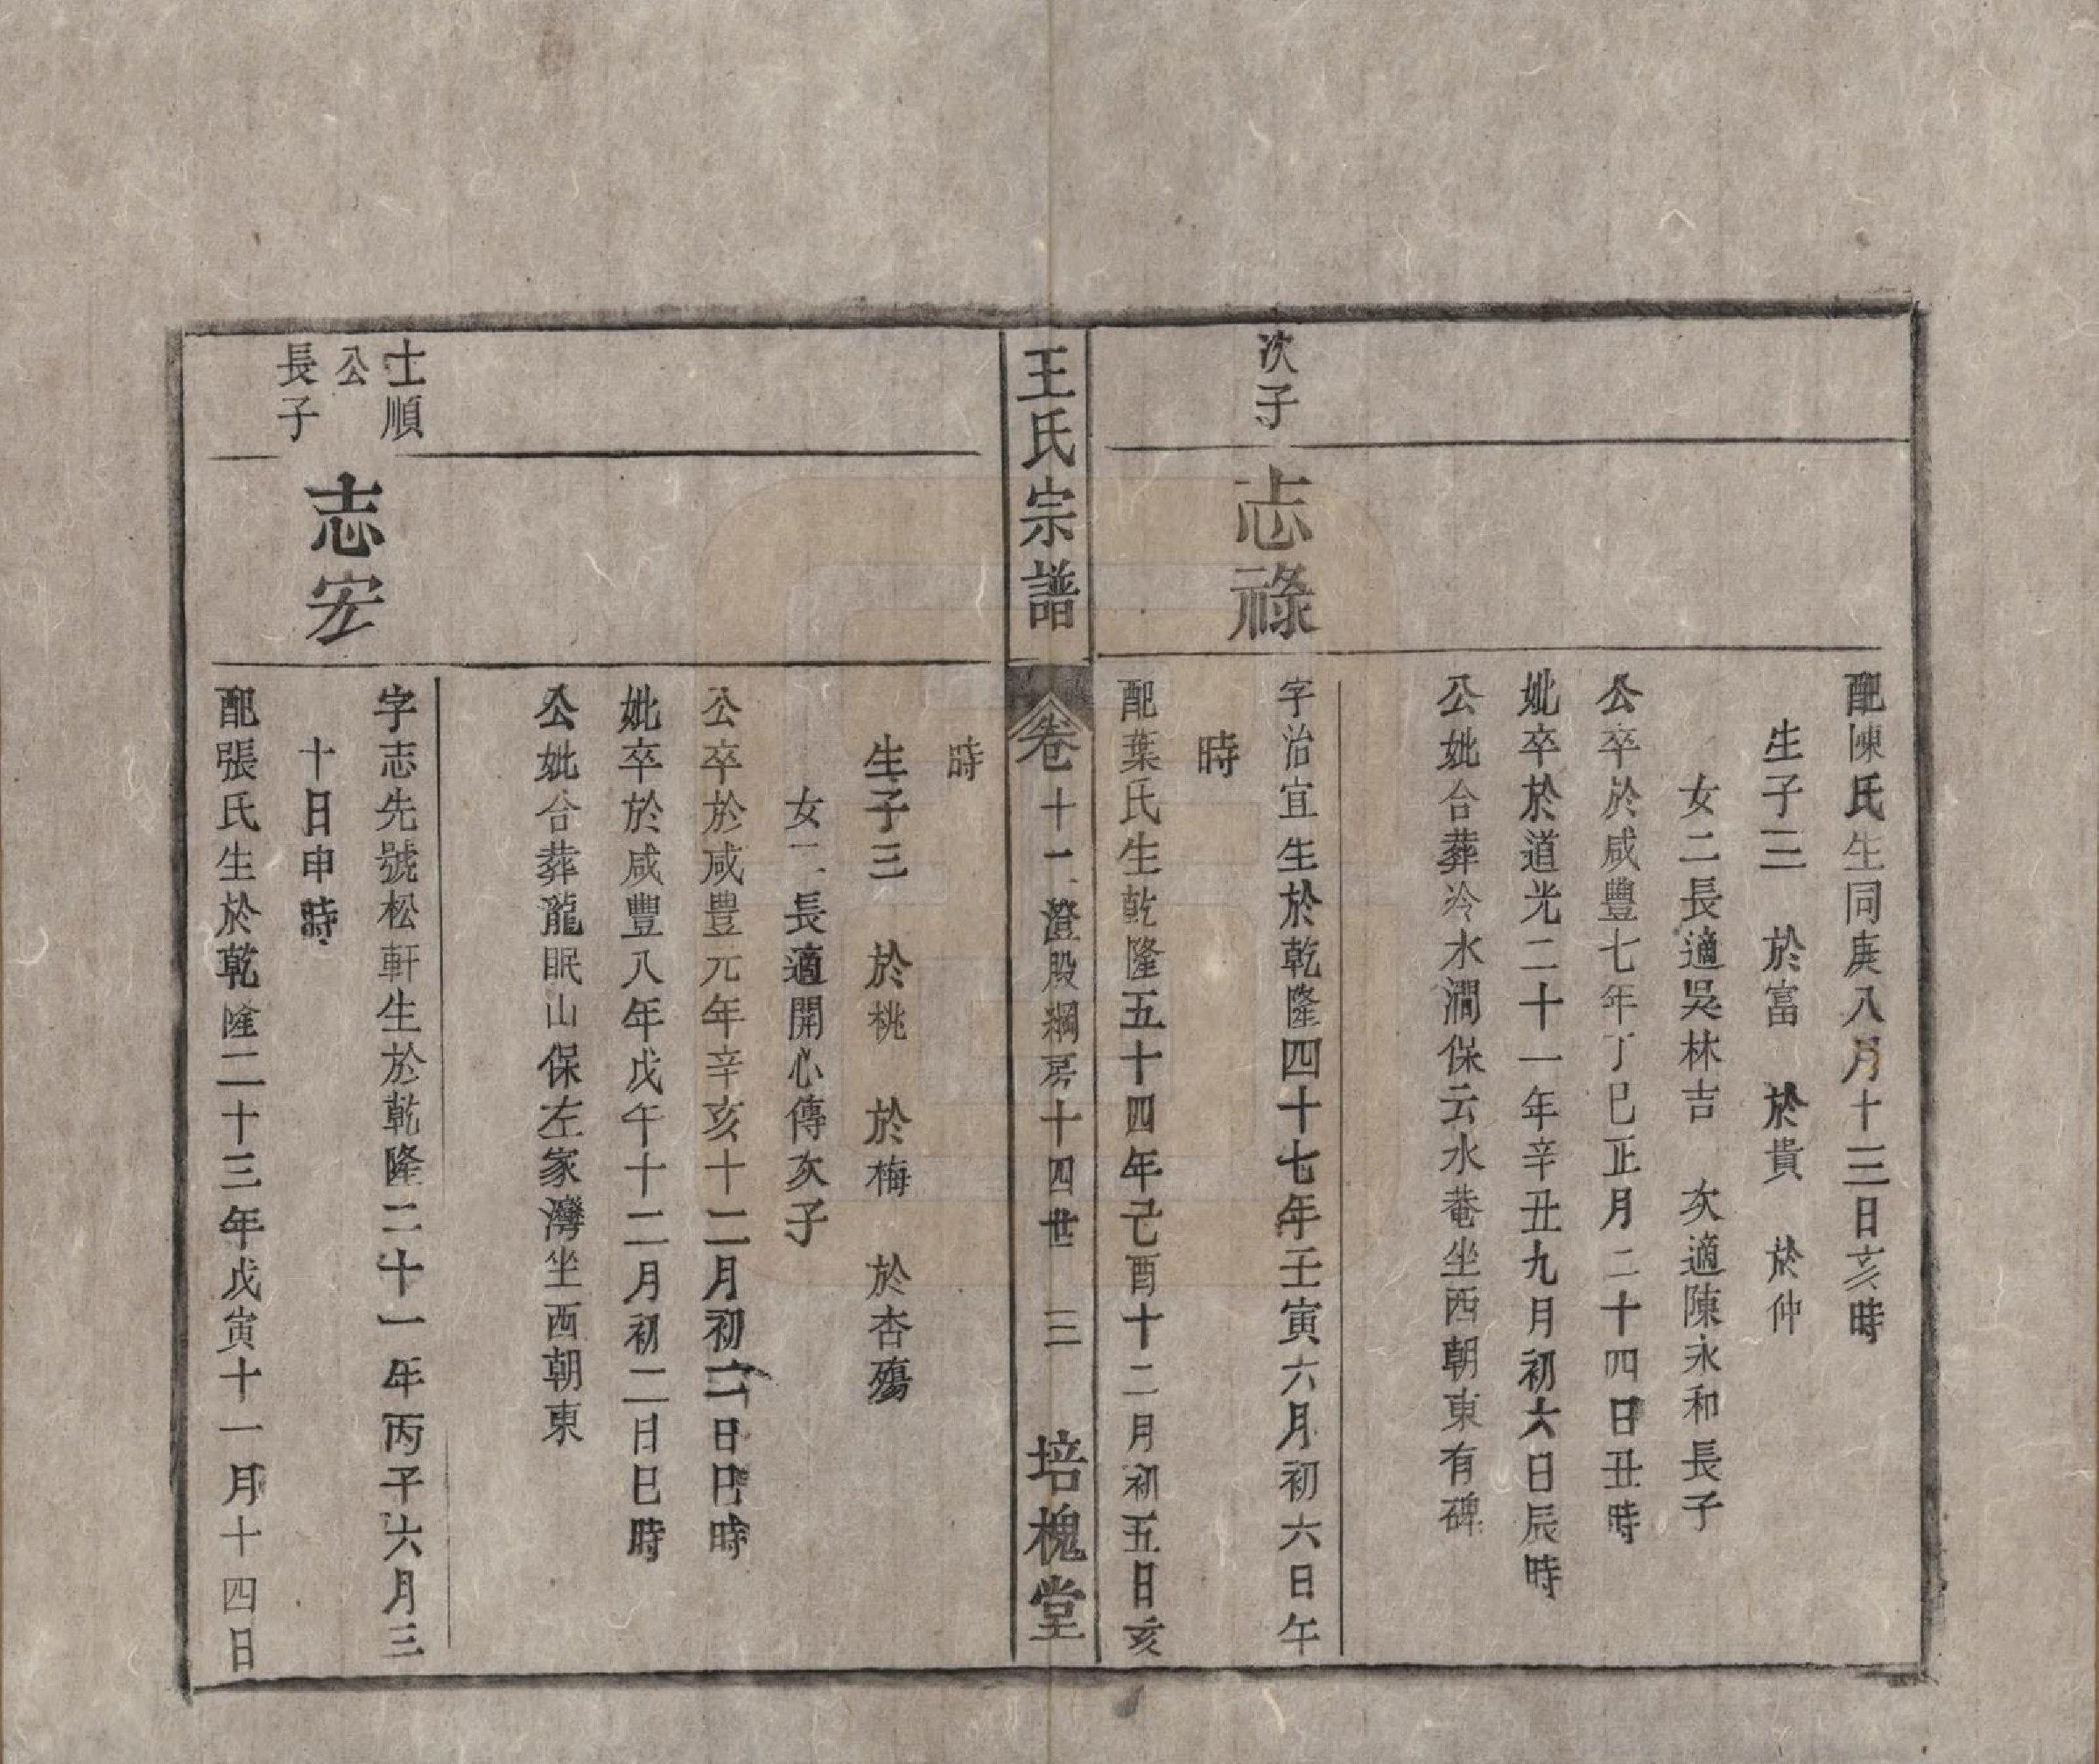 配陳氏生同庚八月十三日亥時
生子三　於富　於貴　於仲
女二長適吳林吉　次適陳永和長子
公卒於咸豐七年丁巳正月二十四日丑時
妣卒於道光二十一年辛丑九月初六日辰時
公妣合葬冷水澗保云水菴坐西朝東有碑
次子
志祿
字治宜生於乾隆四十七年壬寅六月初六日午
時
配葉氏生乾隆五十四年己酉十二月初五日亥
王氏宗譜
卷十一澄股綱房十四世　三　培槐堂
時
生子三　於桃　於梅　於杏殤
女一長適開心傳次子
公卒於咸豊元年辛亥十二月初二日巳時
妣卒於咸豐八年戊午十二月初二日巳時
公妣合葬龍眠山保左家灣坐西朝東
士順
公
長子
志宏
字志先號松軒生於乾隆二十一年丙子六月三
十日申時
配張氏生於乾隆二十三年戊寅十一月十四日